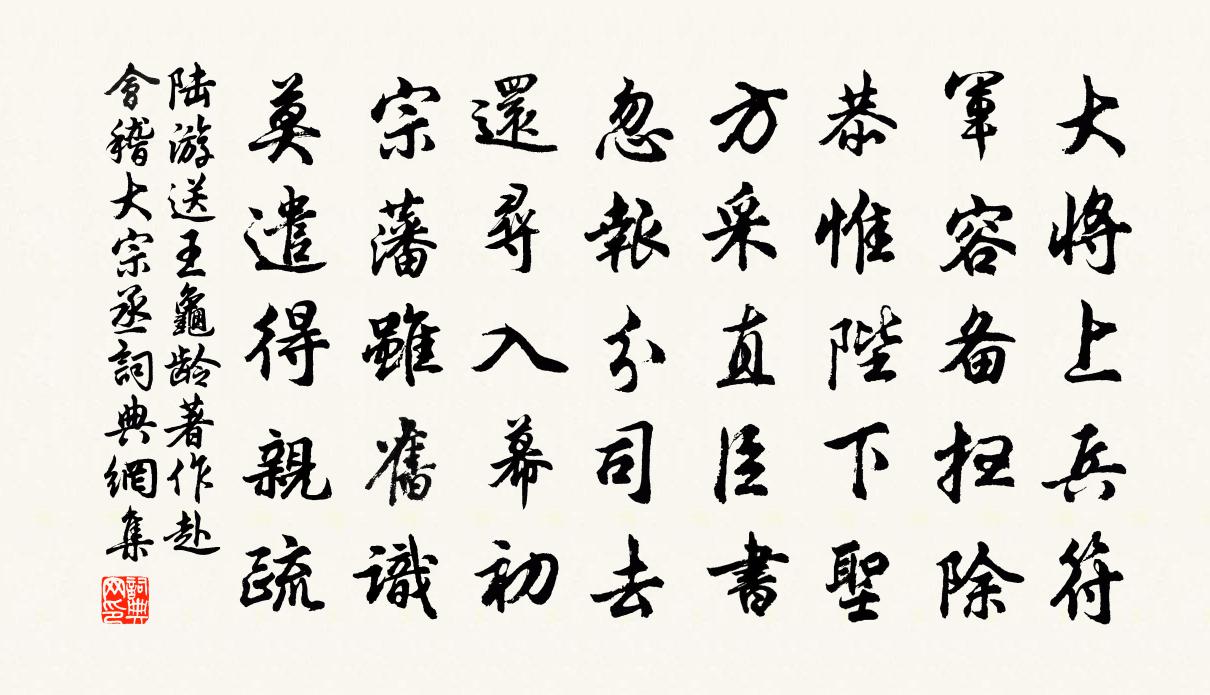 大将上兵符
軍容备扫除
恭惟陛下聖
方采直臣書
忽報分司去
還尋入幕初
宗藩雖舊識
莫遣得親疏
陆游送王龜龄著作赴
會稽大宗丞詞典網集
詞典网印